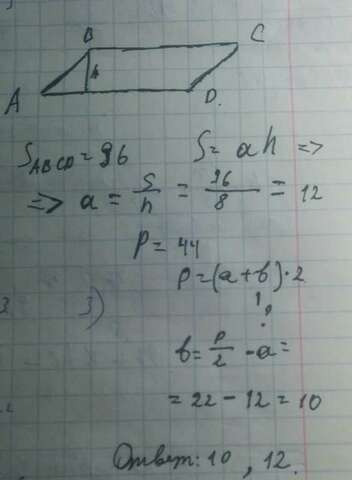 B
C
h
A
D.
S ABCD = 96 S = ah =>
=> a = S/h = 96/8 = 12
P = 44
P = (a + b) · 2
3)
b = P/2 - a =
= 22 - 12 = 10
Ответ: 10 , 12.